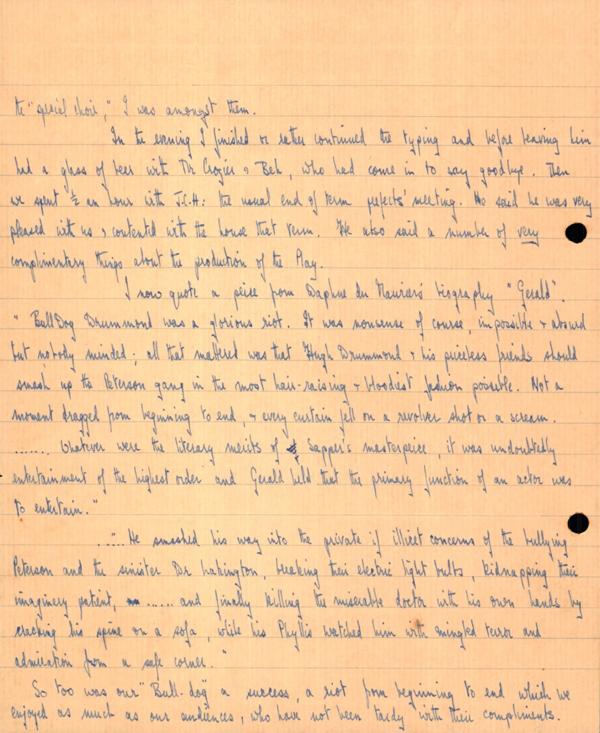 the "special choir," I was amongst them.
In the evening I finished or rather continued the typing and before leaving him
had a glass of beer with Dr Crozier & Beh, who had come in to say goodbye. Then
we spent ½ an hour with J.C.H: the usual end of term prefects' meeting. He said he was very
pleased with us & contented with the house that term. He also said a number of very
complimentary things about the production of the Play.
I now quote a peice from Daphne du Maurier's biography "Gerald".
"BullDog Drummond was a glorious riot. It was nonsense of course, impossible & absurd
but nobody minded; all that mattered was that Hugh Drummond & his priceless friends should
smash up the Peterson gang in the most hair-raising & bloodiest fashion possible. Not a
moment dragged from beginning to end, & every curtain fell on a revolver shot or a scream.
....... Whatever were the literary merits of Sapper's masterpiece, it was undoubtedly
entertainment of the highest order and Gerald held that the primary function of an actor was
to entertain."
..."..He smashed his way into the private if illicit concerns of the bullying
Peterson and the sinister Dr Lakington, breaking their electric light bulbs, kidnapping their
imaginery patient, ...... and finally killing the miserable doctor with his own hands by
cracking his spine on a sofa, while his Phyllis watched him with mingled terror and
admiration from a safe corner."
So too was our "Bull-dog" a success, a riot from beginning to end which we
enjoyed as much as our audiences, who have not been tardy with their compliments.